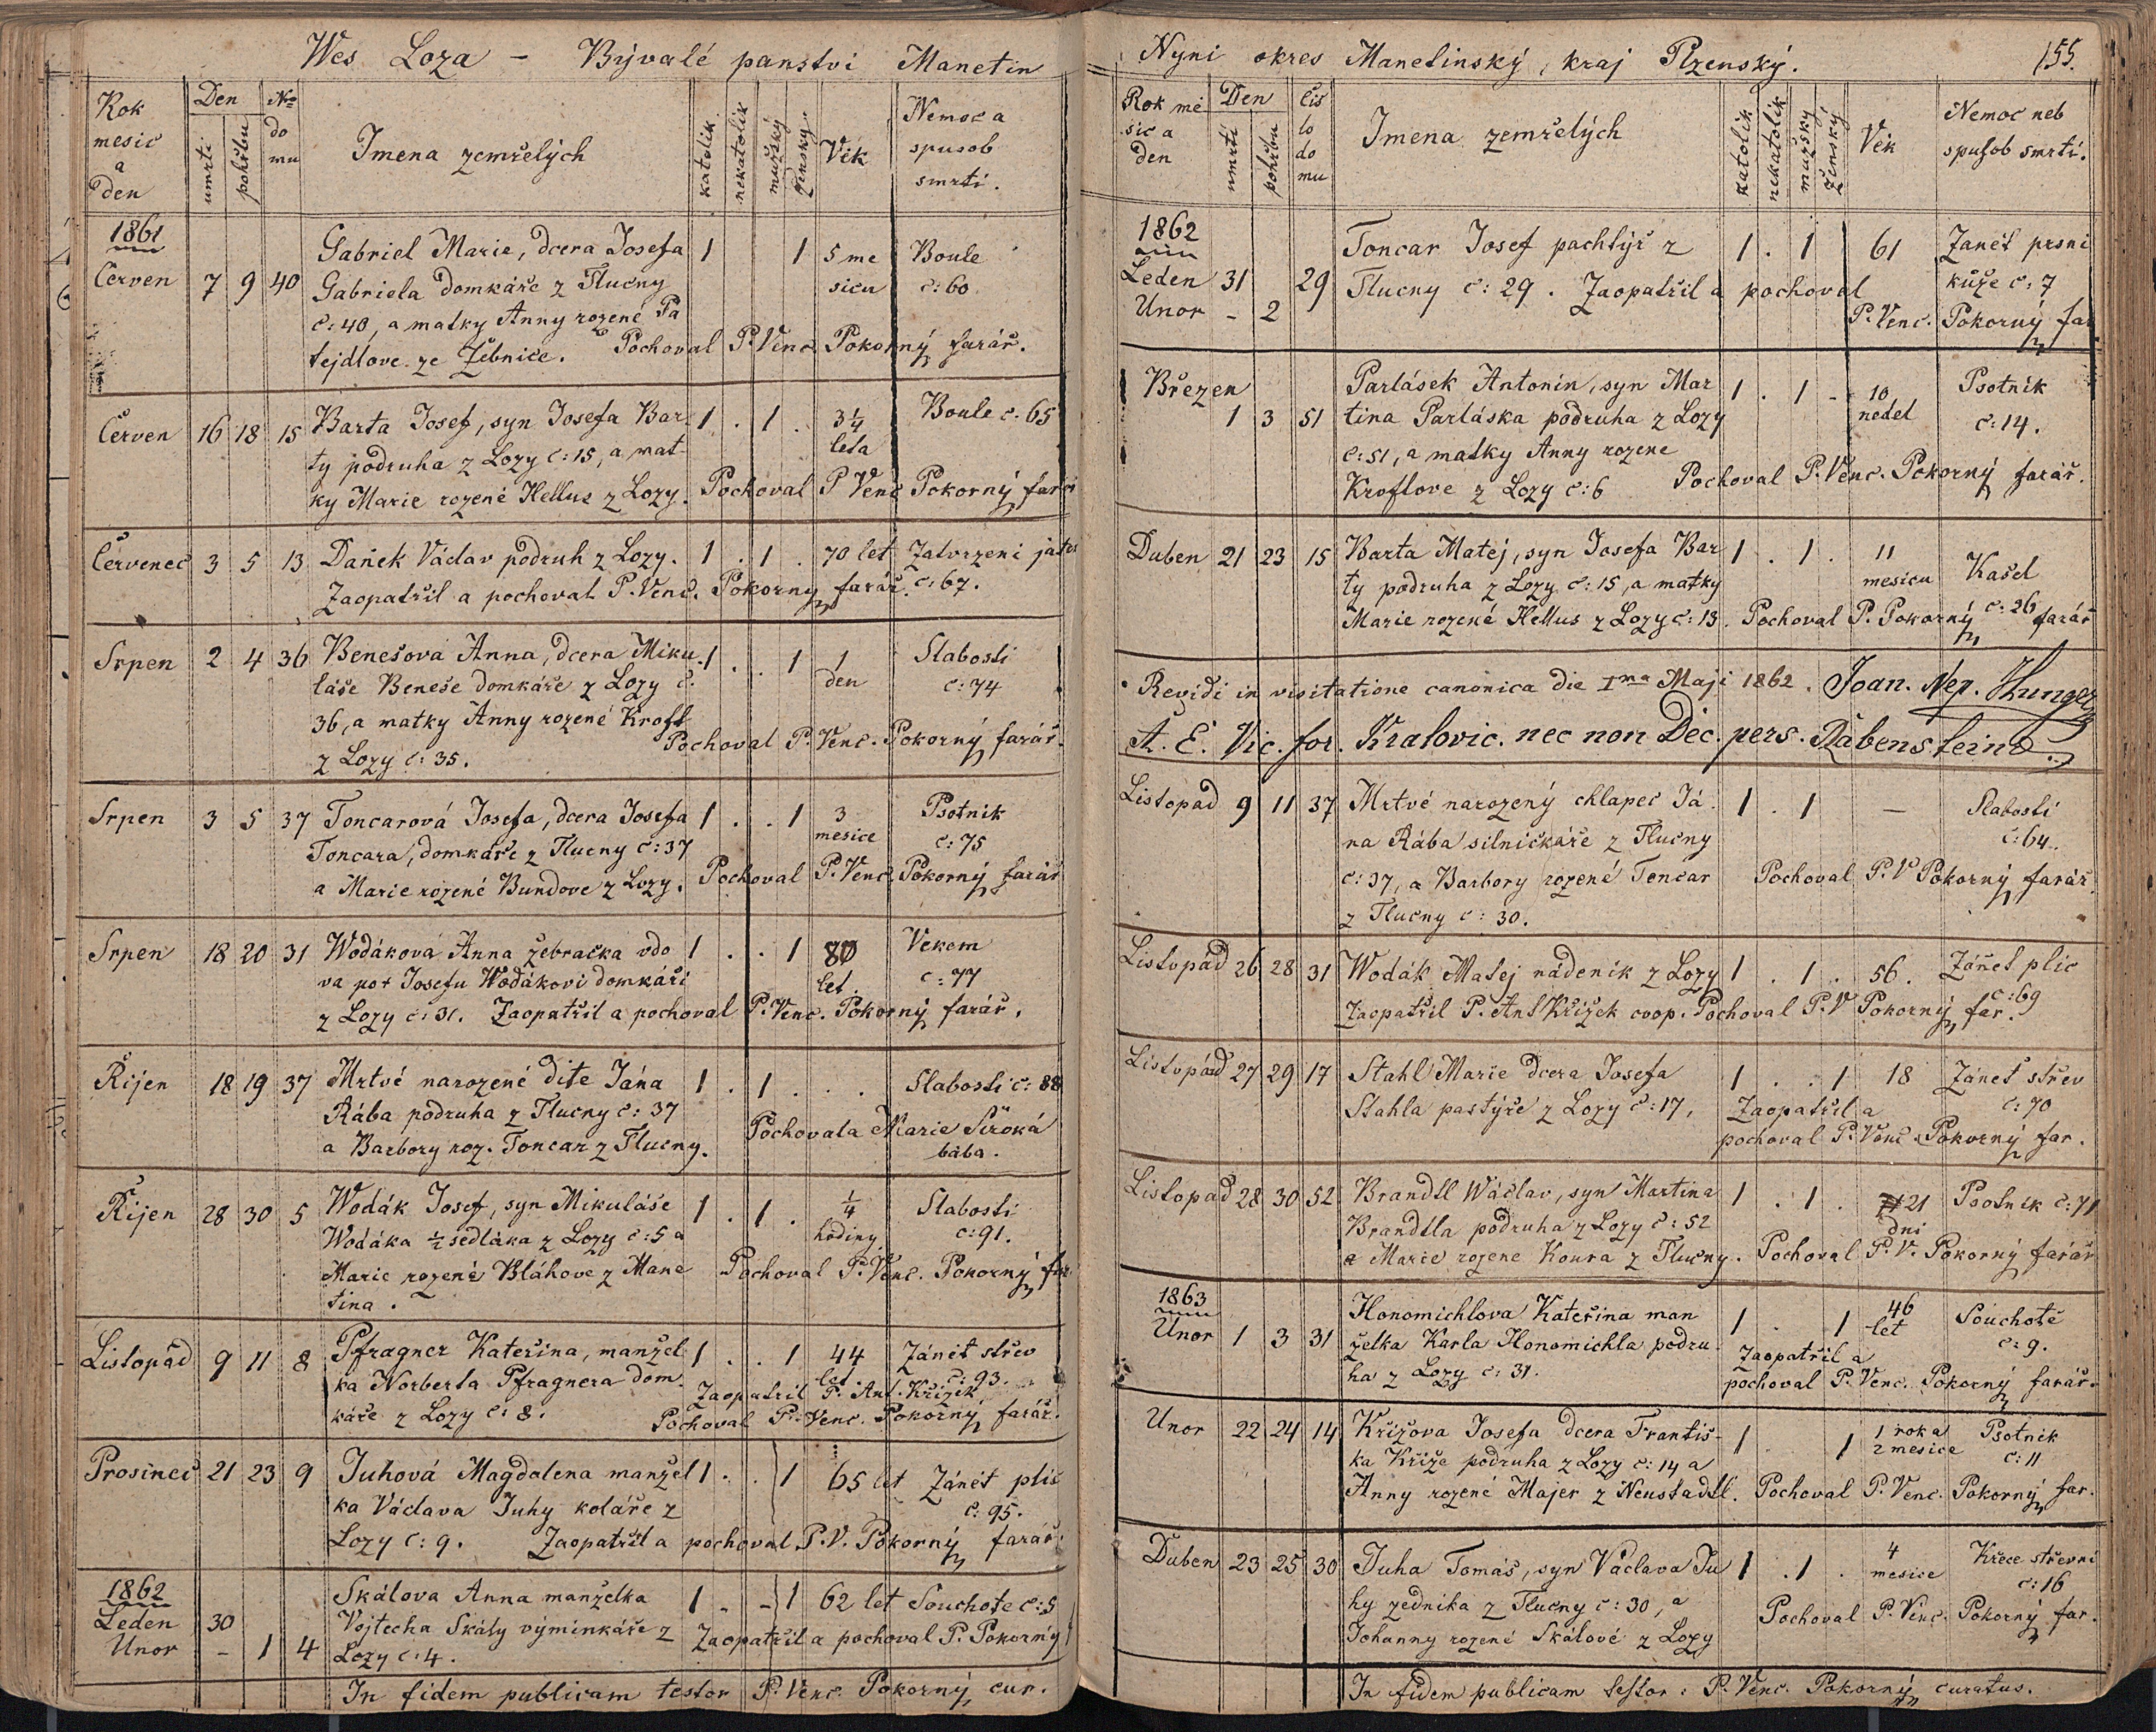 Wes Loza – Bývalé panstvi Manetin
Rok mesic a den
Den
umrti
pohřbu
No domu
Imena zemřelých
katolik
nekatolik
mužský
ženský
Věk
Nemoc a spusob smrti.
1861
Červen 7 9 40 Gabriel Marie, dcera Josefa 1 1 5 me Boule
Gabriela domkáře z Tlucny sicu č: 60.
č: 40, a matky Anny rozené Pa
tejdlove ze Žebnice. Pochoval P. Venc. Pokorný farář.
Červen 16 18 15 Barta Josef, syn Josefa Bar 1 . 1 . 3¼ Boule č. 65
ty podruha z Lozy č: 15, a mat- leta
ky Marie rozené Hellus z Lozy. Pochoval P Venc Pokorný farář
Červenec 3 5 13 Daněk Václav podruh z Lozy. 1 . 1 . 70 let Zatvrzeni jater
Zaopatřil a pochoval P. Venc. Pokorny farář. č: 67.
Srpen 2 4 36 Benešova Anna, dcera Miku 1 . . 1 1 Slabosti
láše Beneše domkáře z Lozy č. den č: 74
36, a matky Anny rozené Krofl
z Lozy č: 35. Pochoval P. Venc. Pokorný farář.
Srpen 3 5 37 Toncarová Josefa, dcera Josefa 1 . . 1 3 Psotnik
Toncara, domkáře z Tlucny č: 37 mesice č: 75
a Marie rozené Bundove z Lozy. Pochoval P. Venc. Pokorný farář
Srpen 18 20 31 Wodáková Anna žebračka vdo 1 . . 1 80 Vekem
va po+ Josefu Wodákovi domkáři let. č: 77
z Lozy č: 31. Zaopatřil a pochoval P. Venc. Pokorný farář.
Řijen 18 19 37 Mrtvé narozené díte Jána 1 . 1 . . Slabosti č: 88
Rába podruha z Tlucny č: 37
a Barbory roz. Toncar z Tlucny. Pochovala Marie Široká
bába.
Řijen 28 30 5 Wodák Josef, syn Mikuláše 1 . 1 . ¼ Slabosti
Wodáka ½ sedláka z Lozy č: 5 a hodiny č: 91.
Marie rozené Bláhove z Mane Pochoval P. Venc. Pokorný far.
tina.
Listopád 9 11 8 Pfragner Kateřina, manžel 1 . . 1 44 Zánět střev
ka Norberta Pfragnera dom let č: 93.
káře z Lozy č: 8. Zaopatřil P. Ant. Křižek
Pochoval P. Venc. Pokorný farář.
Prosinec 21 23 9 Juhová Magdalena manžel 1 . . 1 65 let Zánět plic
ka Václava Juhy koláře z č: 95.
Lozy č: 9. Zaopatřil a pochoval P. V. Pokorný farář.
1862
Leden 30 Skálova Anna manželka 1 - - 1 62 let Souchote č: 5
Unor - 1 4 Vojtecha Skály výminkáře z Zaopatřil a pochoval P. Pokorný
Lozy č: 4.
In fidem publicam testor P. Venc. Pokorný cur.
Nyni okres Manetinský, kraj Plzenský. 155.
Rok mesic a den
Den
umrti
pohřbu
čislo domu
Imena zemřelých
katolik
nekatolik
mužský
ženský
Věk
Nemoc neb spusob smrti.
1862
Leden 31 29 Toncar Josef pachtýř z 1 . 1 61 Zanět prsni
Unor - 2 Tlucny č: 29. Zaopatřil a pochoval kuže č: 7
P. Venc. Pokorný far
Březen 1 3 51 Parlásek Antonín, syn Mar 1 . 1 - 10 Psotnik
tina Parláska podruha z Lozy nedel č: 14.
č: 51, a matky Anny rozene
Kroflove z Lozy č: 6 Pochoval P. Venc. Pokorný farář.
Duben 21 23 15 Barta Matej, syn Josefa Bar 1 . 1 . 11 Kašel
ty podruha z Lozy č: 15, a matky mesicu č: 26
Marie rozené Hellus z Lozy č: 13. Pochoval P. Pokorný farář
Revidi in visitatione canonica die Ima Maji 1862. Joan. Nep. Hunger
A. E. Vic. for. Kralovic. nec non Dec. pers. Rabenstein
Listopad 9 11 37 Mrtvé narozený chlapec Já 1 . 1 — Slabosti
na Rába silničkáře z Tlucny č: 64.
č: 37, a Barbory rozené Toncar Pochoval P. V Pokorný farář
z Tlucny č: 30.
Listopád 26 28 31 Wodák Matej nádeník z Lozy 1 . 1 . 56. Zánet plic
Zaopatřil P. Ant Křižek coop. Pochoval P. V Pokorný far. č: 69
Listopád 27 29 17 Stahl Marie dcera Josefa 1 . . 1 18 Zánet střev
Stahla pastýře z Lozy č: 17, Zaopatřil a č: 70
pochoval P. Venc. Pokorný far.
Listopad 28 30 52 Brandtl Wáclav, syn Martina 1 . 1 . 21 Psotnik č: 71
Brandtla podruha z Lozy č: 52 dni
a Marie rozene Koura z Tlučny. Pochoval P. V. Pokorný farář
1863
Unor 1 3 31 Honomichlova Kateřina man 1 . 1 46 Souchote
želka Karla Honomichla podru let č: 9.
ha z Lozy č: 31. Zaopatřil a
pochoval P. Venc. Pokorný farář.
Unor 22 24 14 Křižova Josefa dcera Františ- 1 . 1 1 roka Psotnik
ka Kříže podruha z Lozy č: 14 a 2 mesice č: 11
Anny rozené Majer z Neustadtl. Pochoval P. Venc. Pokorný far.
Duben 23 25 30 Juha Tomáš, syn Václava Ju 1 . 1 . 4 Křece střevní
hy zedníka z Tlucny č: 30, a mesice č: 16
Johanny rozené Skálové z Lozy Pochoval P. Venc. Pokorný far.
In fidem publicam testor: P. Venc. Pokorný curatus.